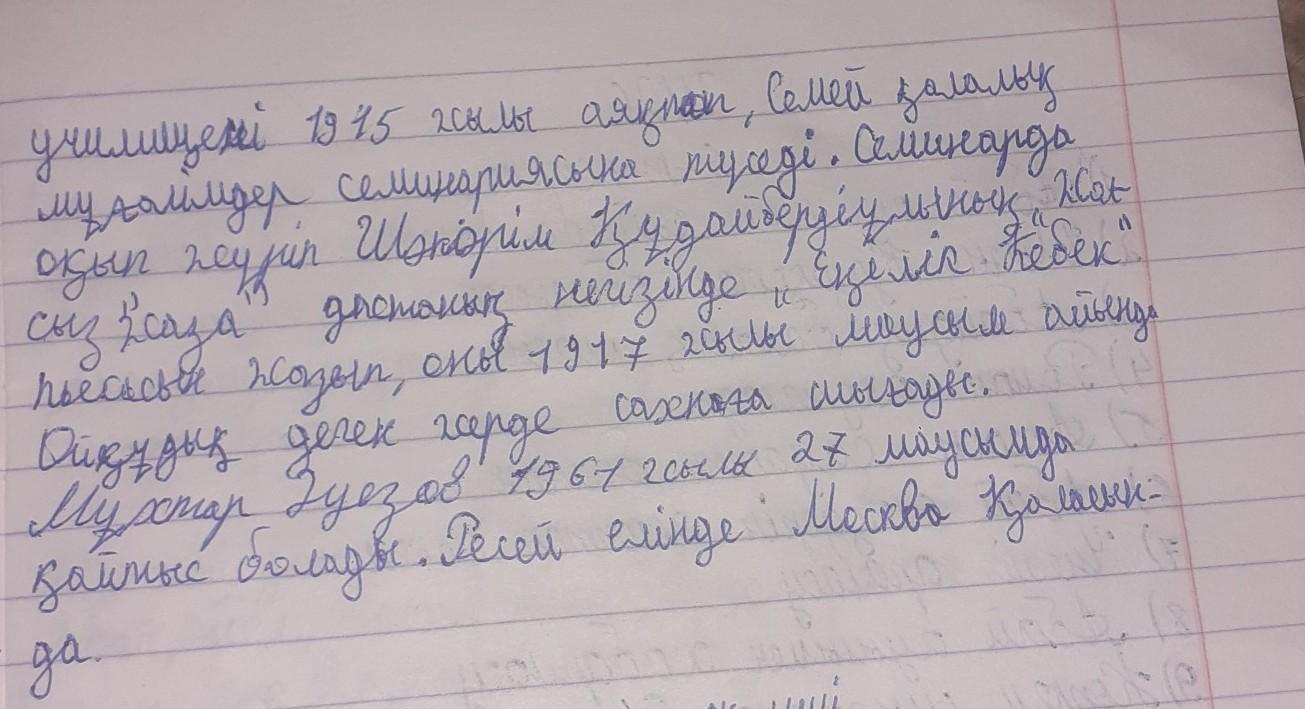 училищені 1915 жылы аяқтап, Семей қалалық
мұғалімдер семинариясына түседі. Семинарда
оқып жүріп Шәкәрім Құдайбердіұлының "Жол
сыз жаза" дастаның негізінде "Еңлік Кебек"
пьесасын жазып, оны 1917 жылы маусым айында
Ойқұдық деген жерде сахнаға шығады.
Мұхтар Әуезов 1961 жылы 27 маусымда
қайтыс болады. Ресей елінде Москва Қаласын-
да.